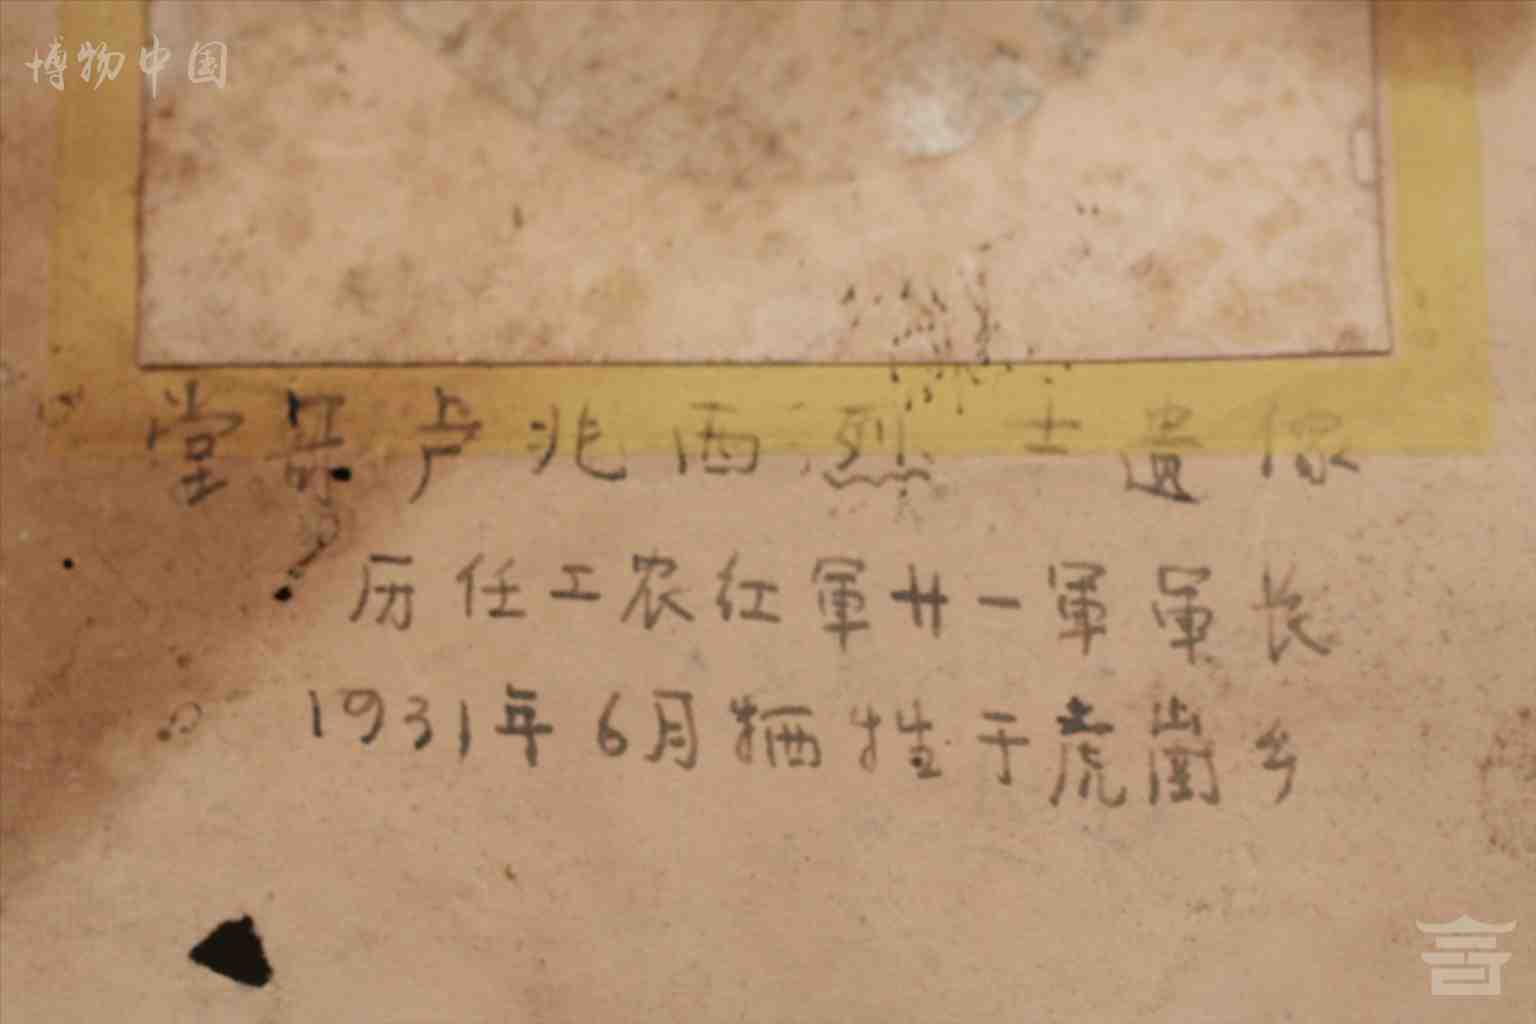 博物中国
堂哥卢兆西烈士遗像
历任工农红軍廿一軍軍长
1931年6月牺牲于虎崗乡